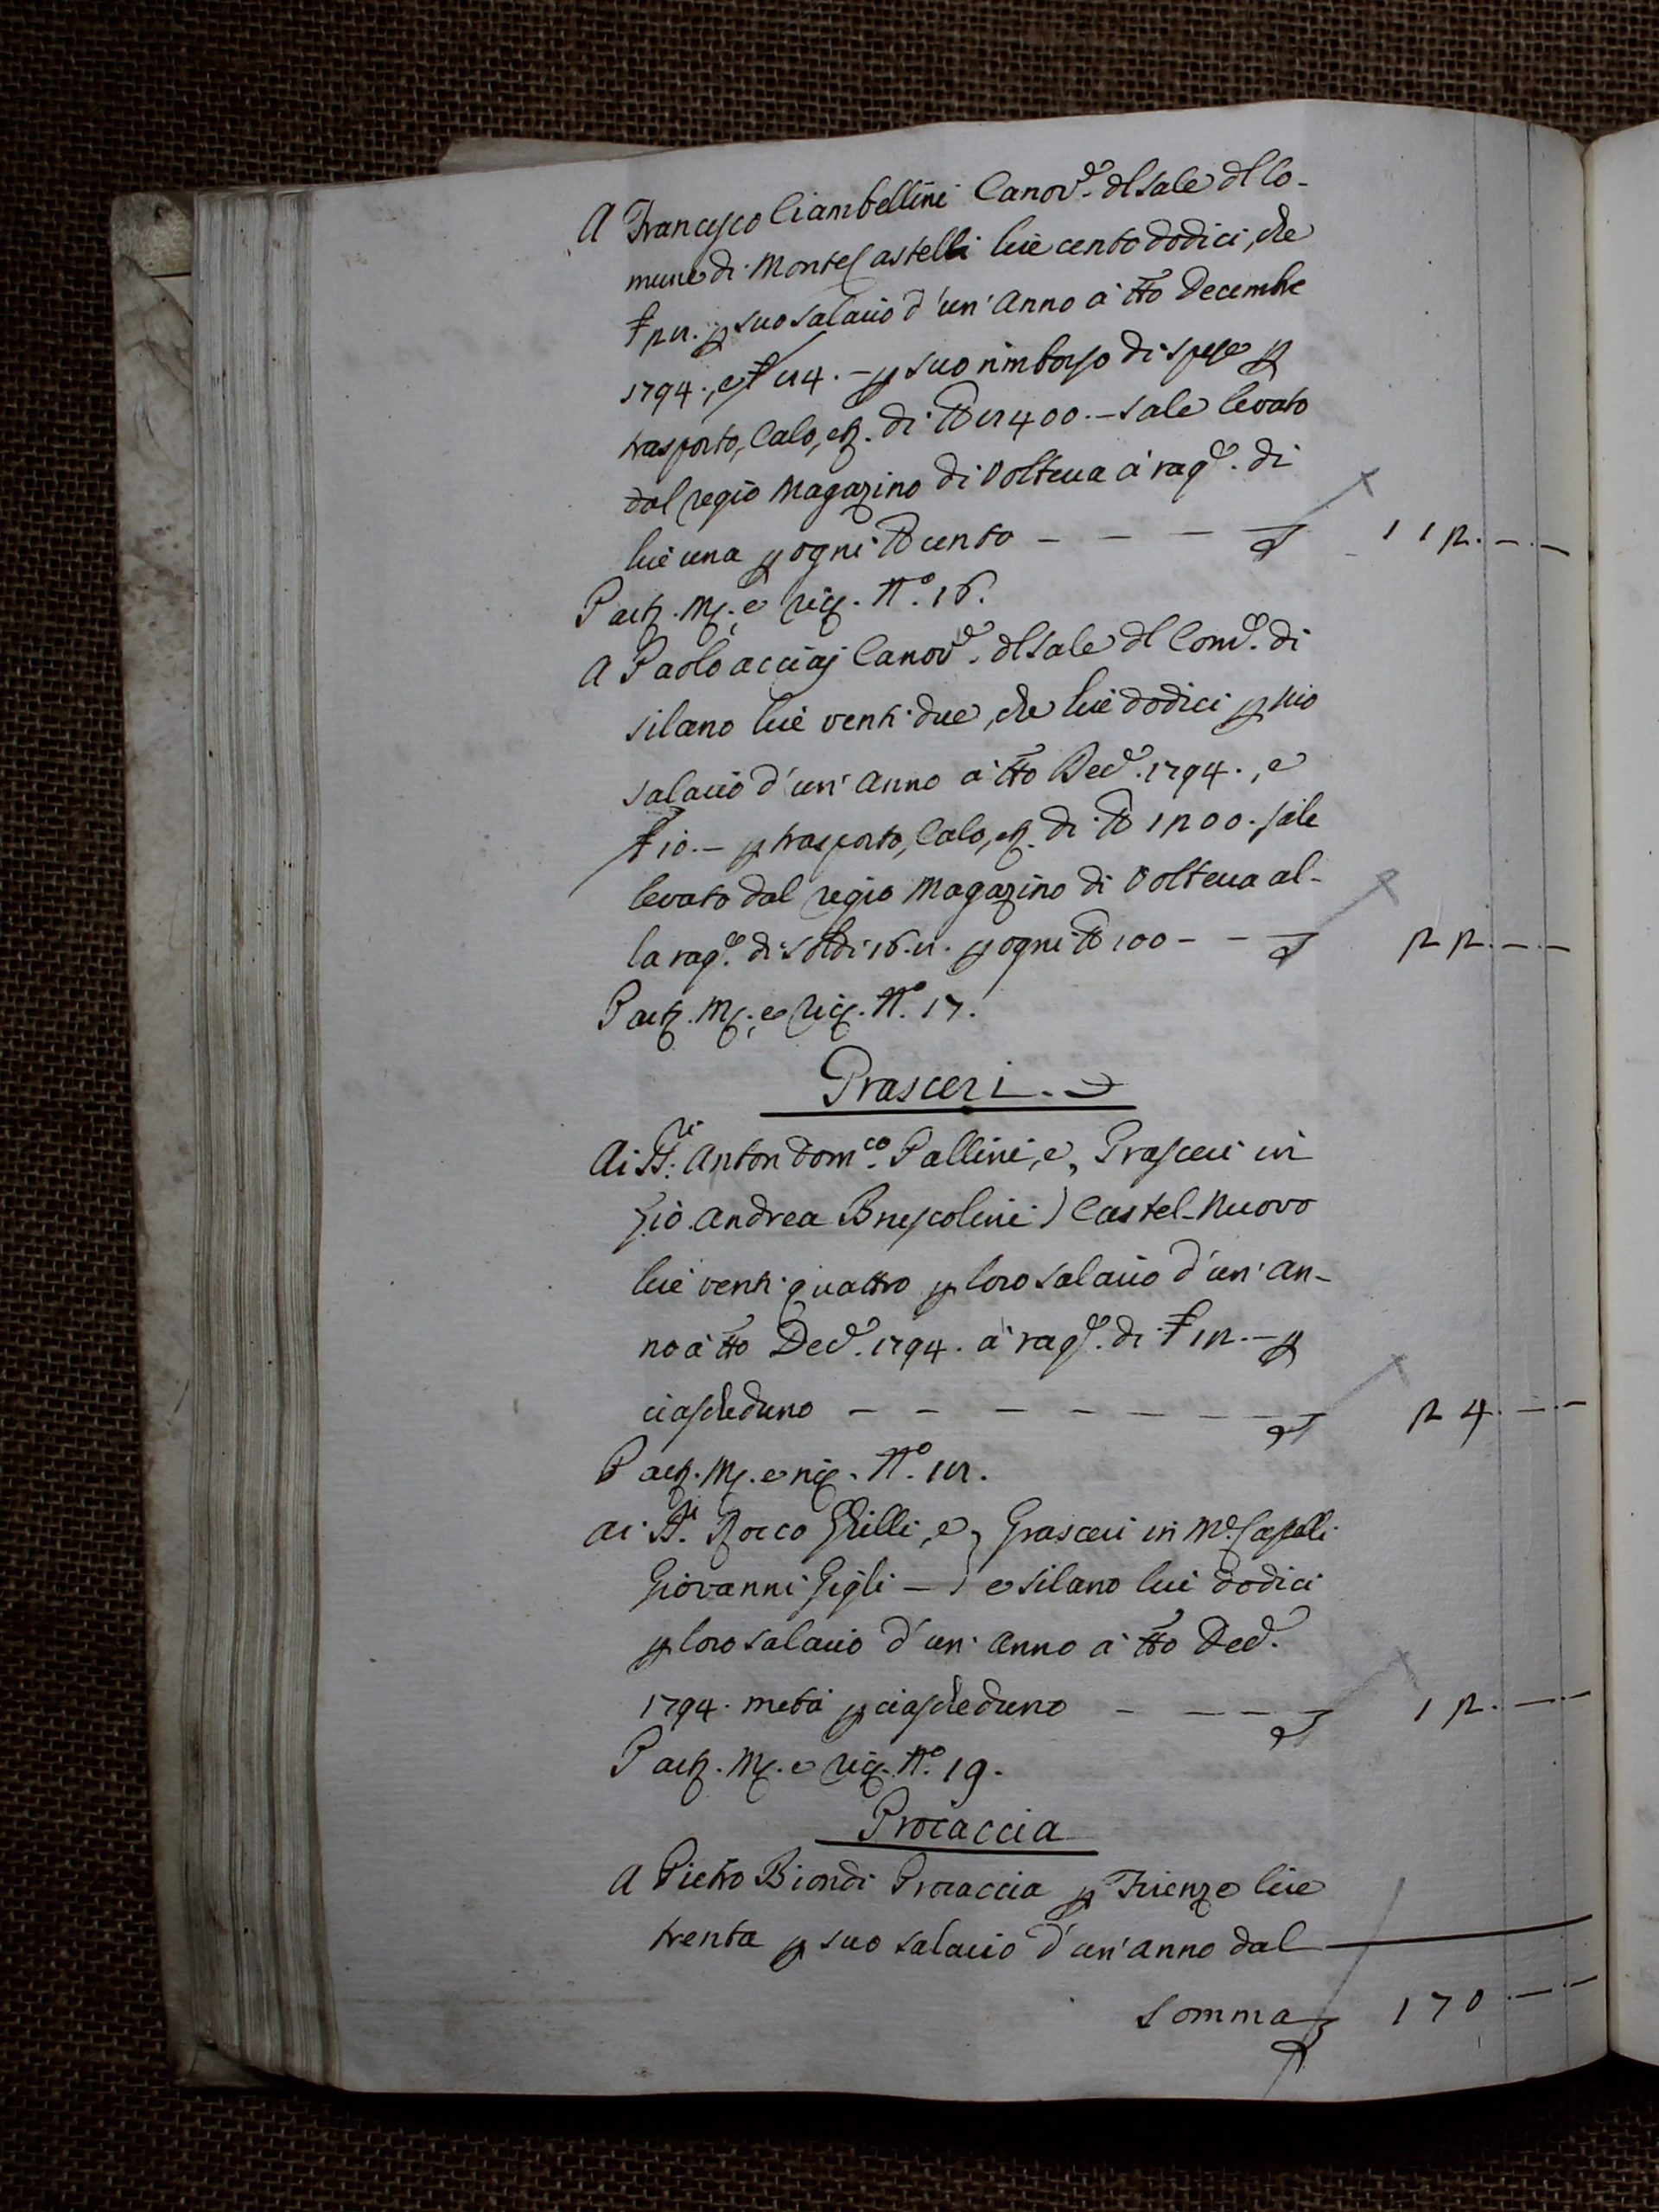 A Francesco Ciambellini Canov.e dl sale dl Co-
mune di Monte Castelli lire cento dodici, che
£ 28. p suo salario d'un' Anno a tto Decembre
1794., e £ 84. - p suo rimborso di spese p
trasporto, Calo, etc. di lb 8400. - sale levato
dal regio Magazino di Volterra a rag.e di
lire una p ogni lb cento - - - - £ 112. - . -
Part. M. e ric. N.o 16.
A Paolo acciaj Canov.e dl sale dl Com.e di
silano lire venti due, che lire dodici p suo
salario d'un' anno a tto Dec.e 1794., e
£ 10. - p trasporto, Calo, etc. di lb 1200. sale
levato dal regio Magazino di Volterra al-
la rag.e di soldi 16.8. p ogni lb 100 - - £ 22. - . -
Part. M. e ric. N.o 17.
Grascieri.
Ai SS.ri Anton Dom.co Pallini, e, Grascieri in
Gio. Andrea Bruscolini ) Castel-Nuovo
lire venti quattro p loro salario d'un' an-
no a tto Dec.e 1794. a rag.e di £ 12. - p
ciascheduno - - - - - - - £ 24. - . -
Part. M. e ric. N.o 18.
Ai SS.ri Rocco Grilli, e, Grascieri in M.e Castelli
Giovanni Gigli - ) e silano lire dodici
p loro salario d'un' anno a tto Dec.e
1794. metà p ciascheduno - - - - £ 12. - . -
Part. M. e ric. N.o 19.
Procaccia
A Pietro Biondi Procaccia p Firenze lire
trenta p suo salario d'un' anno dal
Somma £ 170. - . -